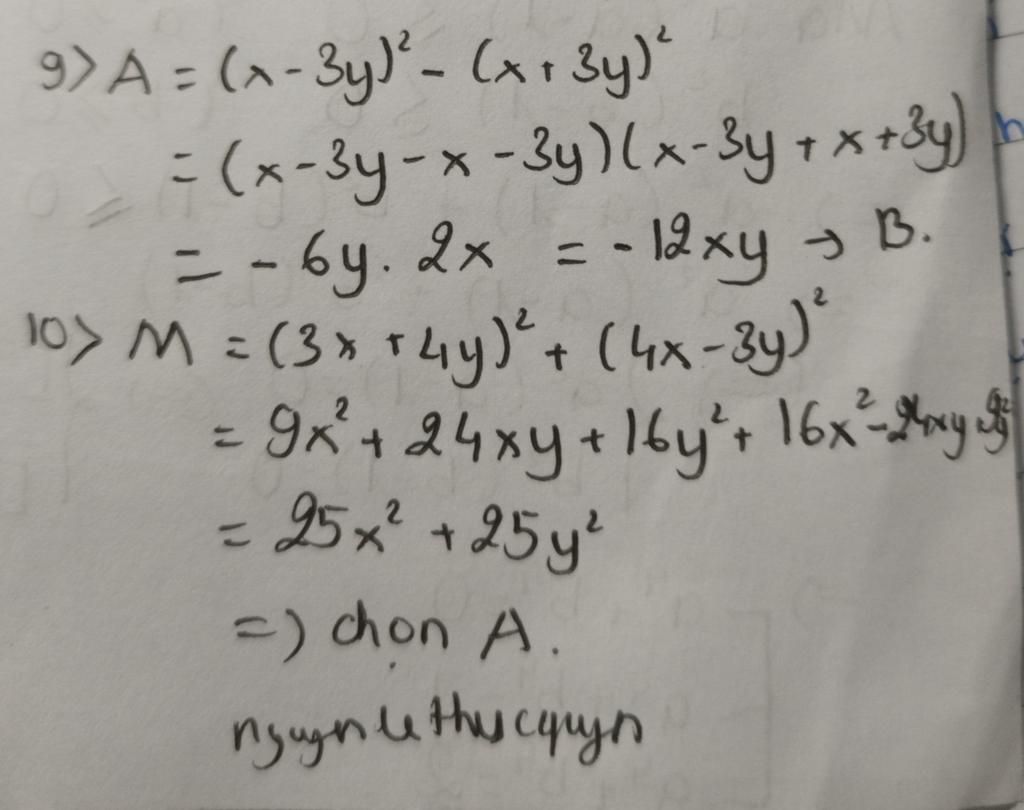 9> A = (x - 3y)² - (x + 3y)²
= (x - 3y - x - 3y)(x - 3y + x + 3y)
= - 6y. 2x = - 12xy → B.
10> M = (3x + 4y)² + (4x - 3y)²
= 9x² + 24xy + 16y² + 16x² - 24xy + 9y²
= 25x² + 25y²
=) chọn A.